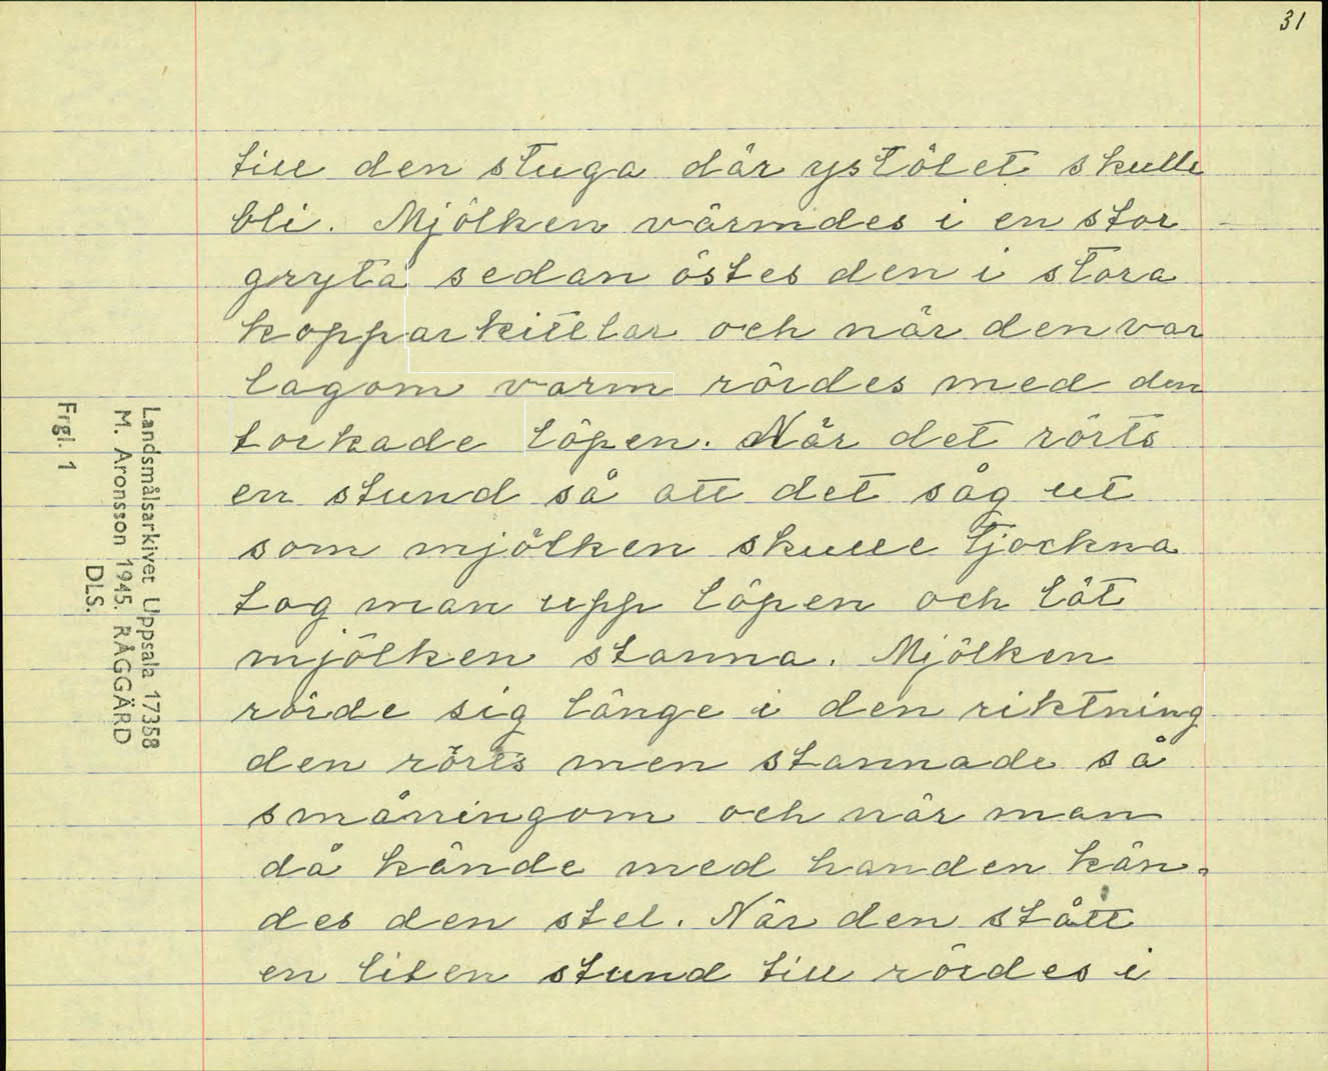 31
till den stuga där ystölet skulle
bli. Mjölken värmdes i en stor
gryta sedan östes den i stora
kopparkittlar och när den var
lagom varm rördes med den
torkade löpen. När det rörts
en stund så att det såg ut
som mjölken skulle tjockna
tog man upp löpen och lät
mjölken stanna. Mjölken
rörde sig länge i den riktning
den rörts men stannade så
småningom och när man
då kände med handen kän-
des den stel. När den stått
en liten stund till rördes i
Landsmålsarkivet Uppsala 17358
M. Aronsson 1945. RÅGGÄRD
DLS.
Frgl. 1